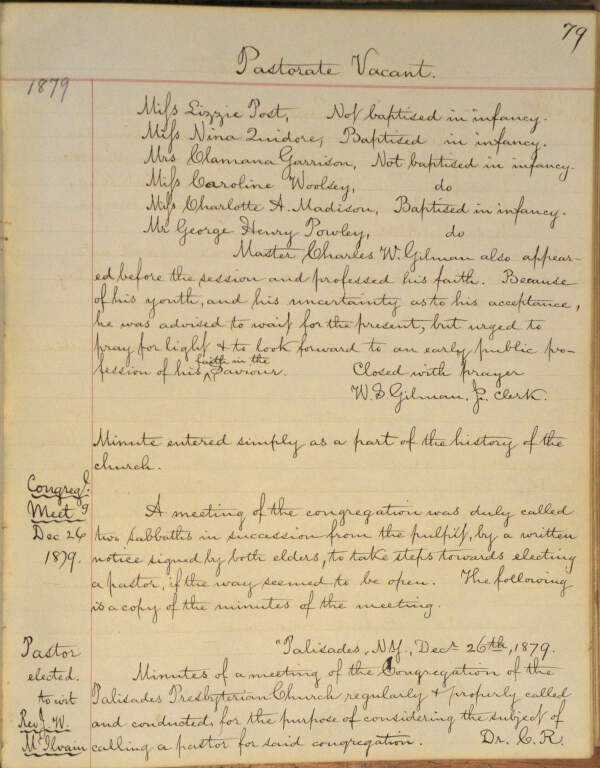 79
Pastorate Vacant.
1879
Miss Lizzie Post, Not baptised in infancy.
Miss Nina Quidore, Baptised in infancy.
Mrs Clamana Garrison, Not baptised in infancy.
Miss Caroline Woolsey, do
Miss Charlotte A. Madison, Baptised in infancy.
Mr George Henry Powley, do
Master Charles W. Gilman also appear-
ed before the session and professed his faith. Because
of his youth, and his uncertainty as to his acceptance,
he was advised to wait for the present, but urged to
pray for light & to look forward to an early public pro-
fession of his faith in the Saviour. Closed with prayer
W. S. Gilman, Jr. clerk.
Minute entered simply as a part of the history of the
church.
Congregl.
Meetg
Dec 26
1879.
A meeting of the congregation was duly called
two sabbaths in succession from the pulpit, by a written
notice signed by both elders, to take steps towards electing
a pastor, if the way seemed to be open. The following
is a copy of the minutes of the meeting.
Pastor
elected.
to wit
Rev J. W.
McIlvain
"Palisades, N.Y., Decr 26th, 1879.
Minutes of a meeting of the Congregation of the
Palisades Presbyterian Church regularly & properly called
and conducted, for the purpose of considering the subject of
calling a pastor for said congregation. Dr. C. R.